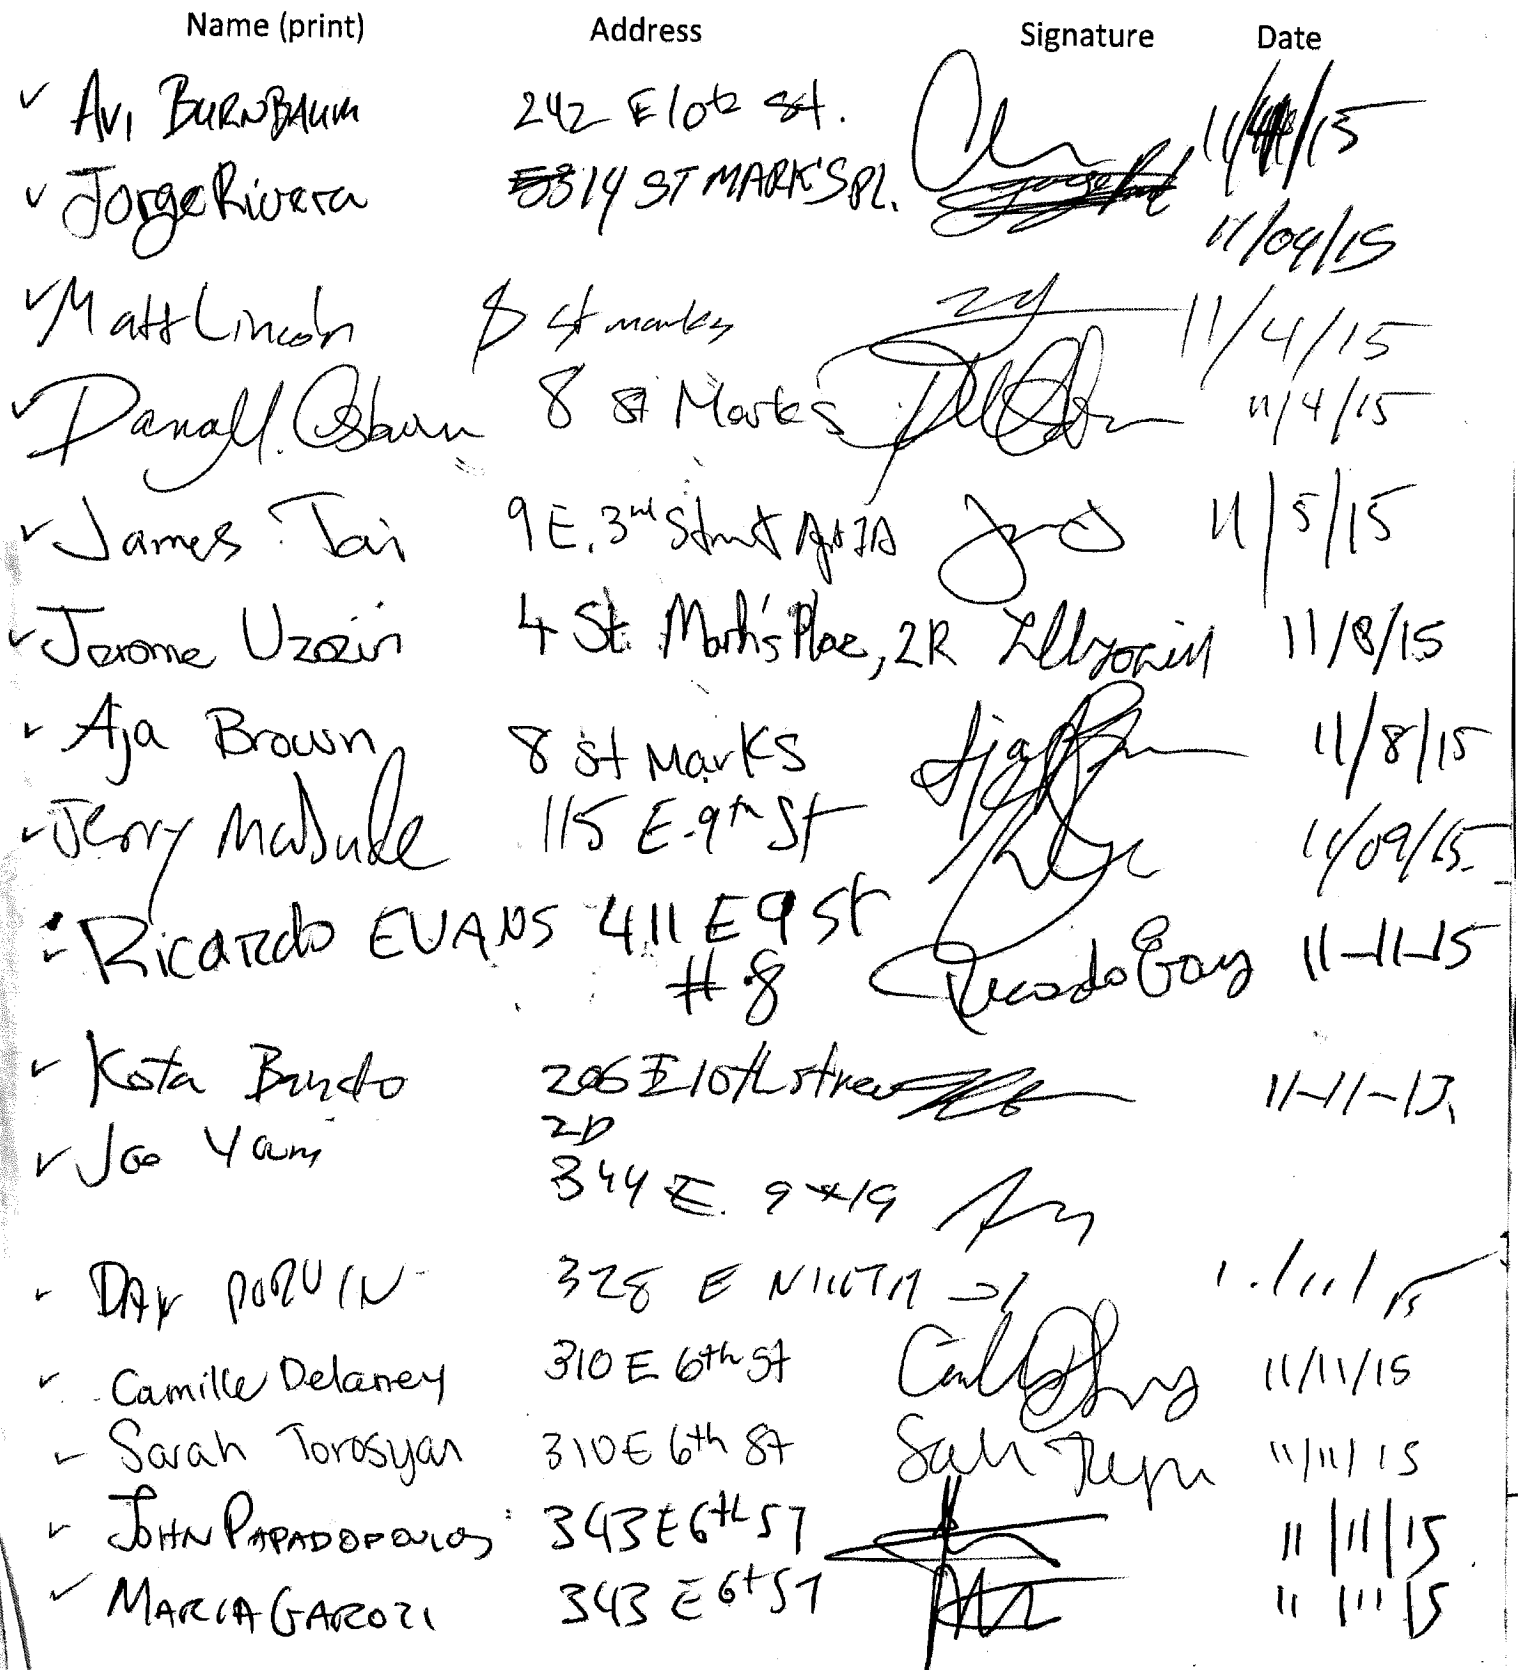 Name (print) Address Signature Date
Avi BURNBAUM 242 E 10th St. 11/ /15
Jorge Rivera 14 ST MARK'S Pl. 11/04/15
Matt Lincoln 8 St marks 11/4/15
Osburn 8 St Mark's 11/4/15
James Tai 9 E. 3rd Street Apt 7A 11/5/15
Jerome Uzozin 4 St. Mark's Place, 2R 11/8/15
Aja Brown 8 St Marks Aja 11/8/15
Jerry 115 E. 9th St 11/09/15
Ricardo EVANS 411 E 9 St 11-11-15
# 8 Ricardo
Kota Bando 206 E 10th street 11-11-15
2D
Joo Yam
344 E. 9 #19
DAX 328 E NINTH 11/15
Camille Delaney 310 E 6th St 11/11/15
Sarah Torosyan 310 E 6th St 11/11/15
JOHN PAPADOPOULOS 343 E 6th ST 11/11/15
MARCIA GAROZI 343 E 6th ST 11 11 15